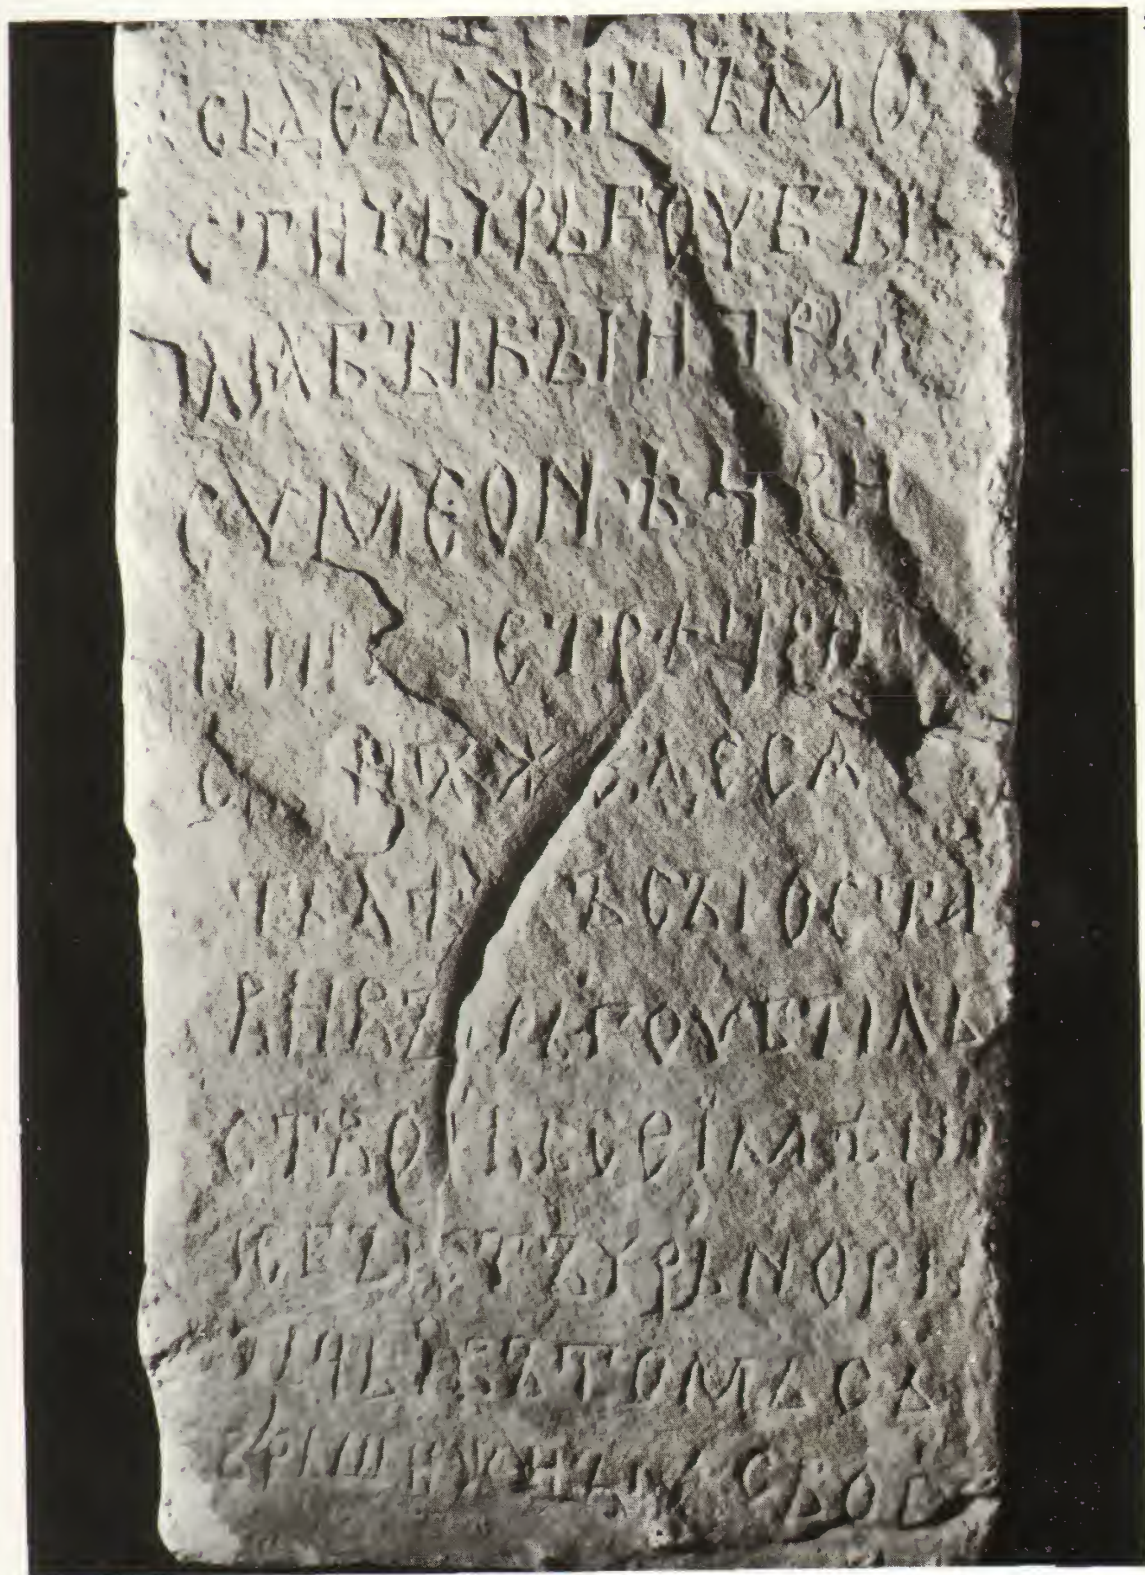 СЬДЕ ЛЕЖИТЪ МО
СТИЧЬ ЧРЬГОУБЫ
ЛꙖ БЫВЫИ ПРИ
СУМЕОНѢ ЦРИ
И ПРИ ПЕТРѢ ЦРИ
ДЕСѦ
ТЬ ЛѢТЪ СЫ ОСТА
ВИВЪ ЧРЬГОУБЫЛЬ
СТВО И ВЬСЕ ИМѢНИ
Ѥ БЫСТЪ ЧРЬНОРИ
ЗЬЦЬ И ВЪ ТОМЬ СЪ
ВРЬШИ ЖИЗНЬ СВОѬ